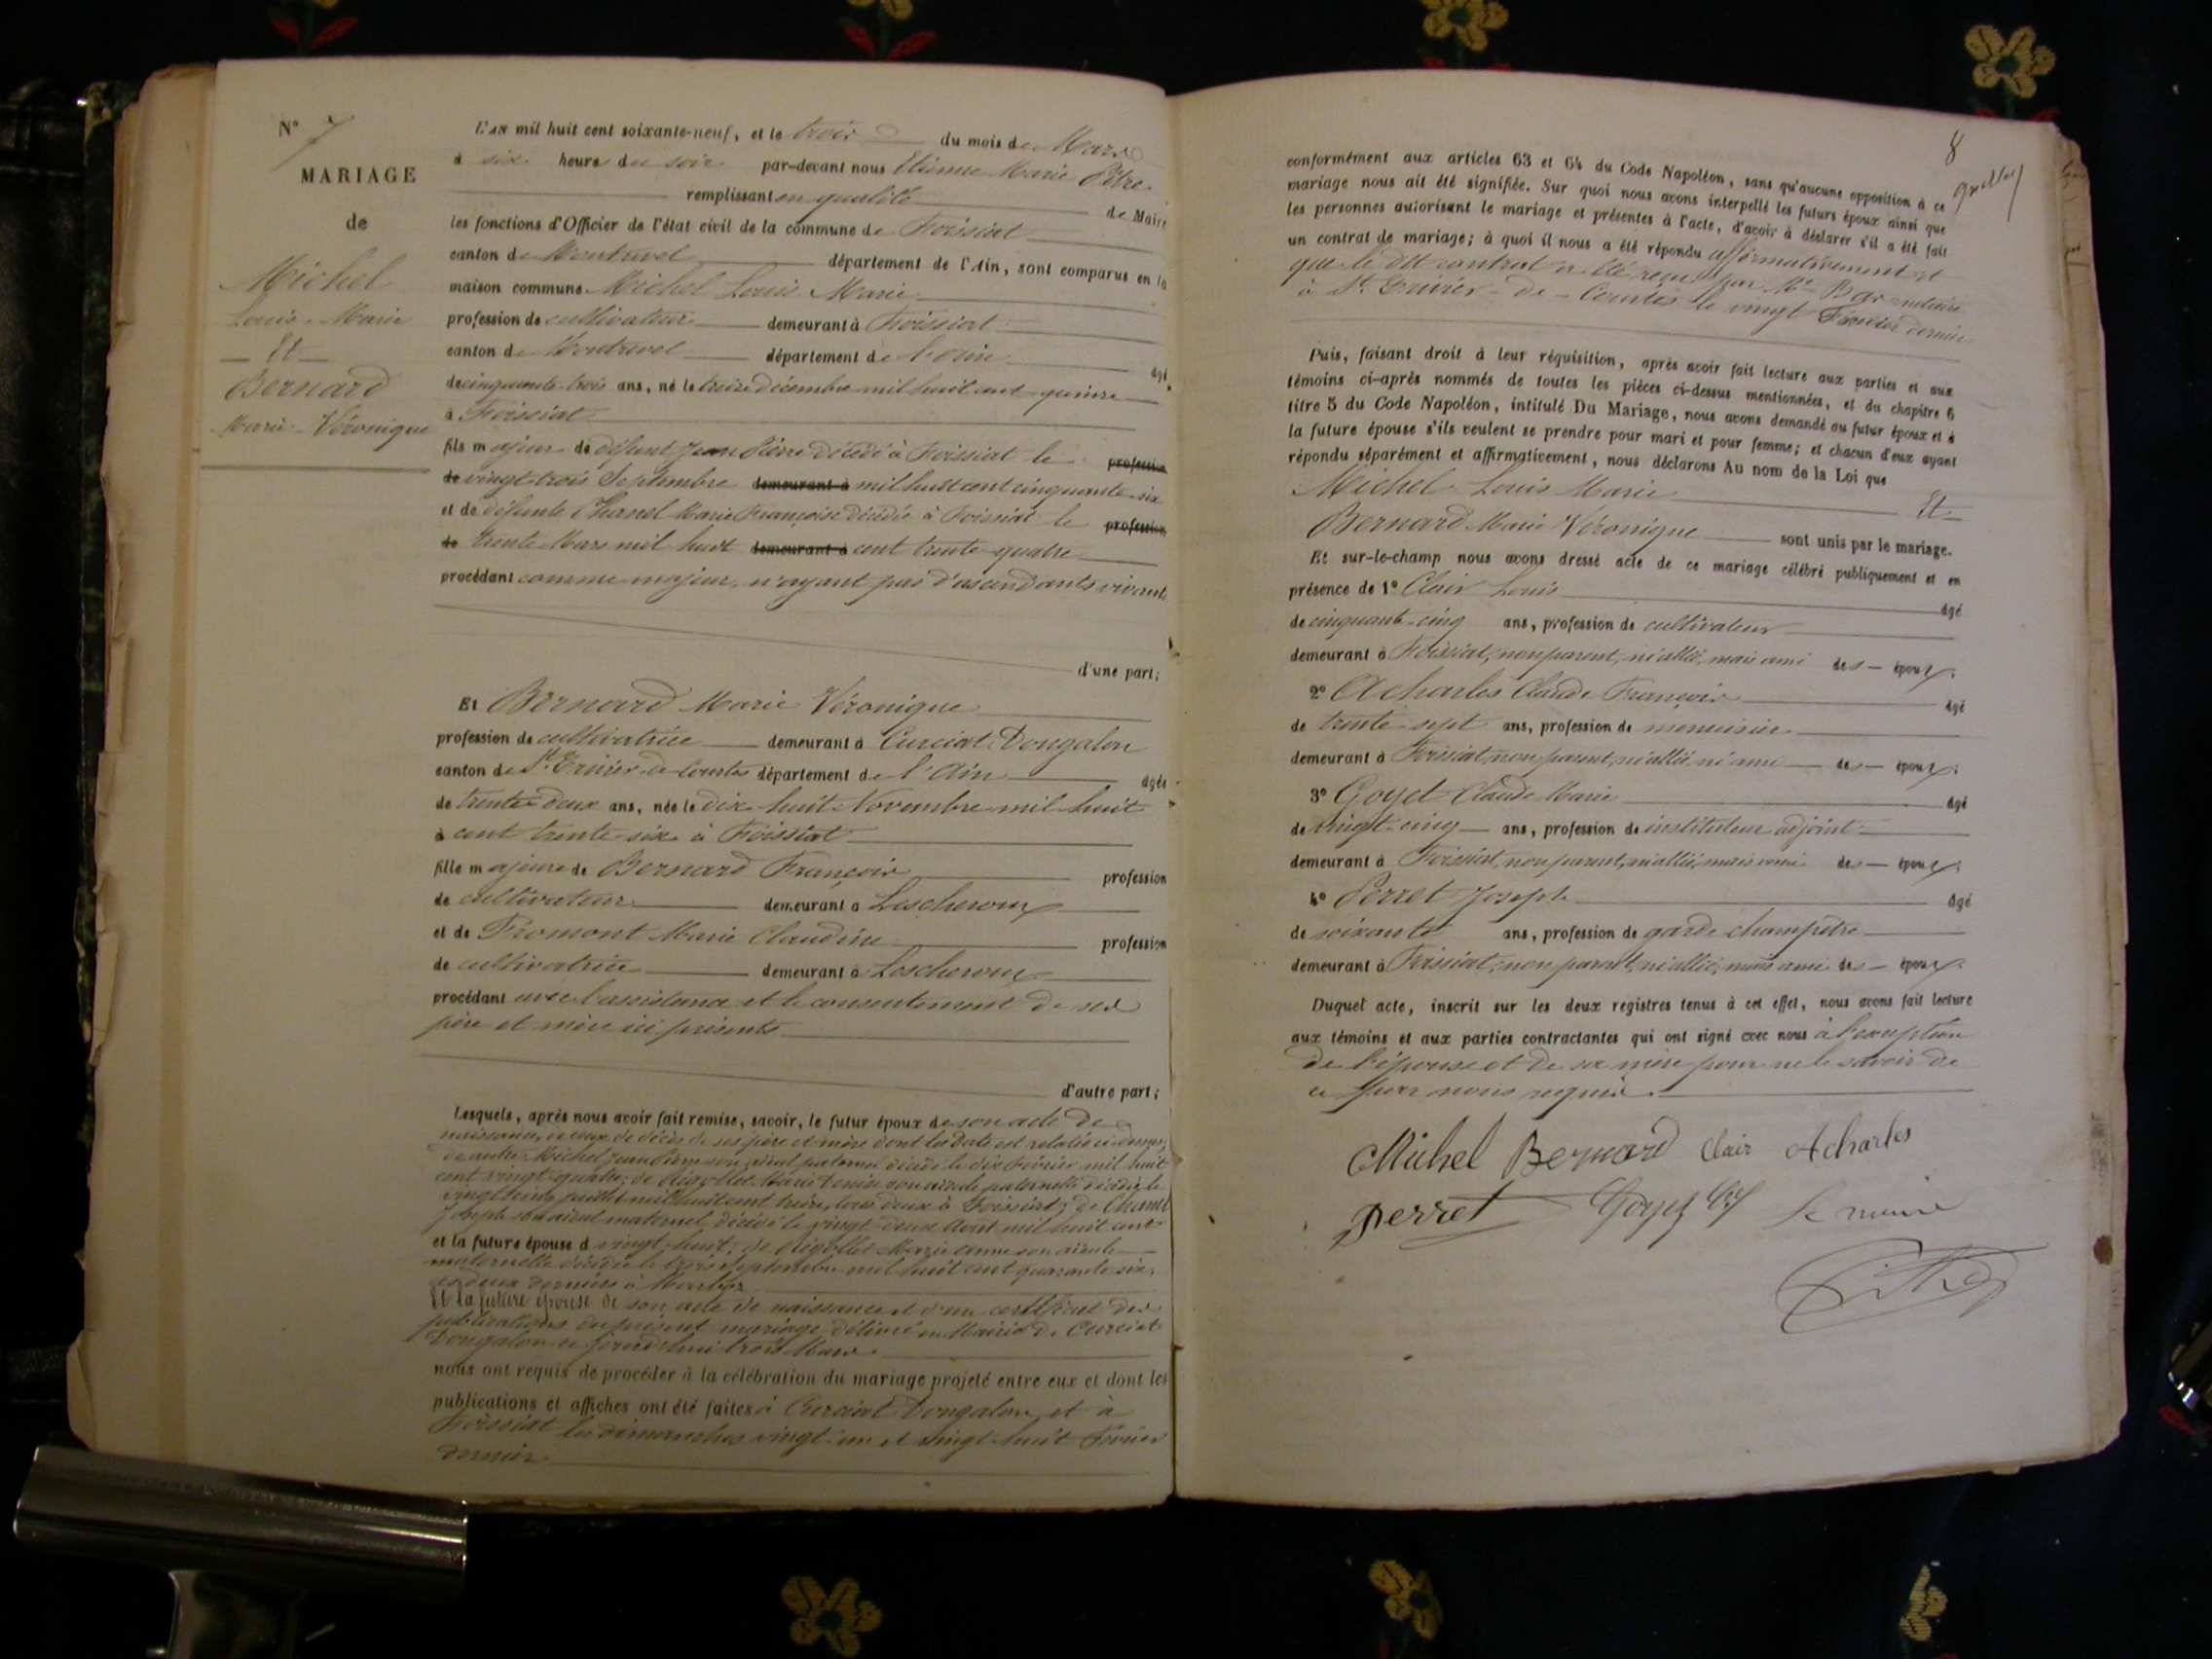 N° 7
MARIAGE
de
Michel
Louis-Marie
Et
Bernard
Marie-Véronique
L'AN mil huit cent soixante-neuf, et le trois du mois de Mars
à six heure du soir par-devant nous Etienne Marie Pitre
remplissant en qualité de Maire
les fonctions d'Officier de l'état civil de la commune de Foissiat
canton de Montrevel département de l'Ain, sont comparus en la
maison commune Michel Louis Marie
profession de cultivateur demeurant à Foissiat
canton de Montrevel département de l'Ain âgé
de cinquante-trois ans, né le treize Décembre mil huit cent quinze
à Foissiat
fils majeur de défunt Jean Pierre décédé à Foissiat le profession
de vingt-trois Septembre demeurant à mil huit cent cinquante-six
et de défunte Chanel Marie Françoise décédée à Foissiat le profession
de trente Mars mil huit demeurant à cent trente-quatre
procédant comme majeur, n'ayant pas d'ascendants vivants
d'une part;
Et Bernard Marie Véronique
profession de cultivatrice demeurant à Curciat-Dongalon
canton de St Trivier-de-Courtes département de l'Ain âgée
de trente-deux ans, née le dix-huit Novembre mil huit
à cent trente-six à Foissiat
fille majeure de Bernard François profession
de cultivateur demeurant à Lescheroux
et de Fromont Marie Claudine profession
de cultivatrice demeurant à Lescheroux
procédant avec l'assistance et le consentement de ses
père et mère ici présents
d'autre part;
Lesquels, après nous avoir fait remise, savoir, le futur époux de son acte de
naissance, de ceux de décès de ses père et mère dont les dates est relatée ci-dessus,
Michel Jean Pierre son aïeul paternel décédé le dix Février mil huit
cent vingt-quatre; de Marie Denise son aïeule paternelle décédée le
juillet mil huit cent treize, tous deux à Foissiat; de Chanel
Joseph son aïeul maternel, décédé le vingt-deux Août mil huit cent
et la future épouse d vingt-huit, de Marie Anne son aïeule
maternelle décédée le trois Septembre mil huit cent quarante-six,
ces deux derniers à
Et la future épouse de son acte de naissance et d'un certificat des
publications du présent mariage délivré en Mairie de Curciat-
Dongalon ce jourd'hui trois Mars
nous ont requis de procéder à la célébration du mariage projeté entre eux et dont les
publications et affiches ont été faites à Curciat-Dongalon et à
Foissiat les dimanches vingt-un et vingt-huit Février
dernier
8
conformément aux articles 63 et 64 du Code Napoléon, sans qu'aucune opposition à ce
mariage nous ait été signifiée. Sur quoi nous avons interpellé les futurs époux ainsi que
les personnes autorisant le mariage et présentes à l'acte, d'avoir à déclarer s'il a été fait
un contrat de mariage; à quoi il nous a été répondu affirmativement et
que le dit contrat a été reçu par Me notaire
à St Trivier-de-Courtes le vingt Février dernier
Puis, faisant droit à leur réquisition, après avoir fait lecture aux parties et aux
témoins ci-après nommés de toutes les pièces ci-dessus mentionnées, et du chapitre 6
titre 5 du Code Napoléon, intitulé Du Mariage, nous avons demandé au futur époux et à
la future épouse s'ils veulent se prendre pour mari et pour femme; et chacun d'eux ayant
répondu séparément et affirmativement, nous déclarons Au nom de la Loi que
Michel Louis Marie Et
Bernard Marie Véronique sont unis par le mariage.
Et sur-le-champ nous avons dressé acte de ce mariage célébré publiquement et en
présence de 1° Clair Louis âgé
de cinquante-cinq ans, profession de cultivateur
demeurant à Foissiat, non parent, ni allié, mais ami des époux.
2° Acharles Claude François âgé
de trente-sept ans, profession de menuisier
demeurant à Foissiat, non parent, ni allié, ni ami des époux;
3° Goyet Claude Marie âgé
de vingt-cinq ans, profession de instituteur adjoint
demeurant à Foissiat, non parent, ni allié, mais ami des époux;
4° Perret Joseph âgé
de soixante ans, profession de garde champêtre
demeurant à Foissiat, non parent, ni allié, mais ami des époux.
Duquel acte, inscrit sur les deux registres tenus à cet effet, nous avons fait lecture
aux témoins et aux parties contractantes qui ont signé avec nous à l'exception
de l'épouse et de sa mère pour ne le savoir de
ce par nous requis.
Michel Bernard Clair Acharles
Perret Goyet Le maire